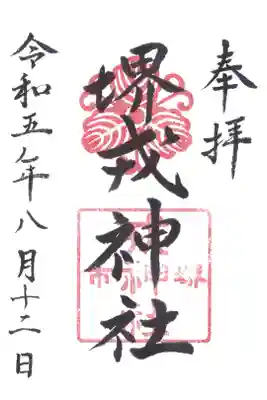 奉拝
堺戎神社
令和五年八月十二日